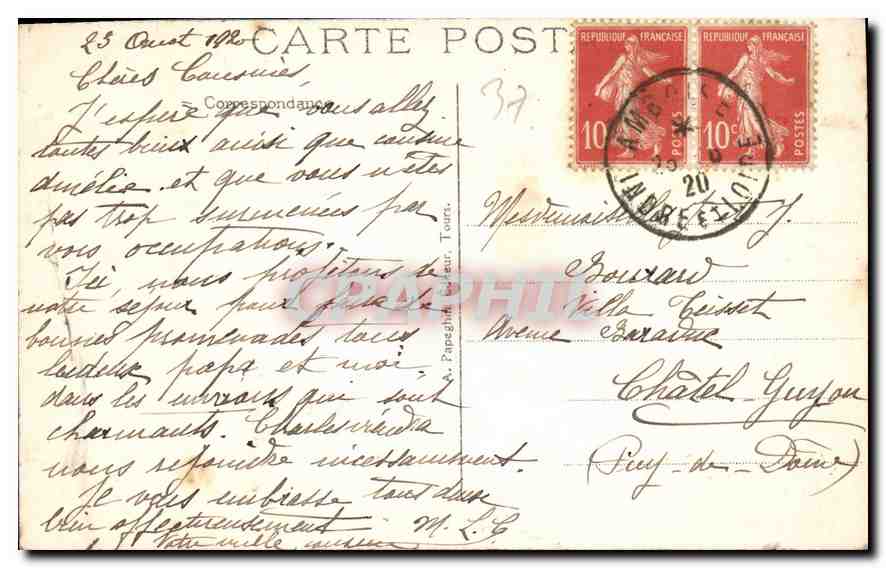 23 Aout 1920
CARTE POST
Chères Cousines
Correspondance
J'espère que vous allez
toutes bien ainsi que cousine
Amélie et que vous n'êtes
pas trop surmenées par
vos occupations.
Ici, nous profitons de
notre séjour pour faire de
bonnes promenades tous
les deux papa et moi,
dans les environs qui sont
charmants. Charles viendra
nous rejoindre incessamment.
Je vous embrasse tous deux
bien affectueusement M. L. C
Votre vieille cousine
A. Papeghin, Editeur, Tours.
CPAPHIL
37
REPUBLIQUE FRANÇAISE
10c
POSTES
REPUBLIQUE FRANÇAISE
10c
POSTES
AMBOISE
20
INDRE ET LOIRE
Mesdemoiselles J.
Bouzard
Villa Teisset
Avenue Baraduc
Châtel-Guyon
(Puy-de-Dôme)